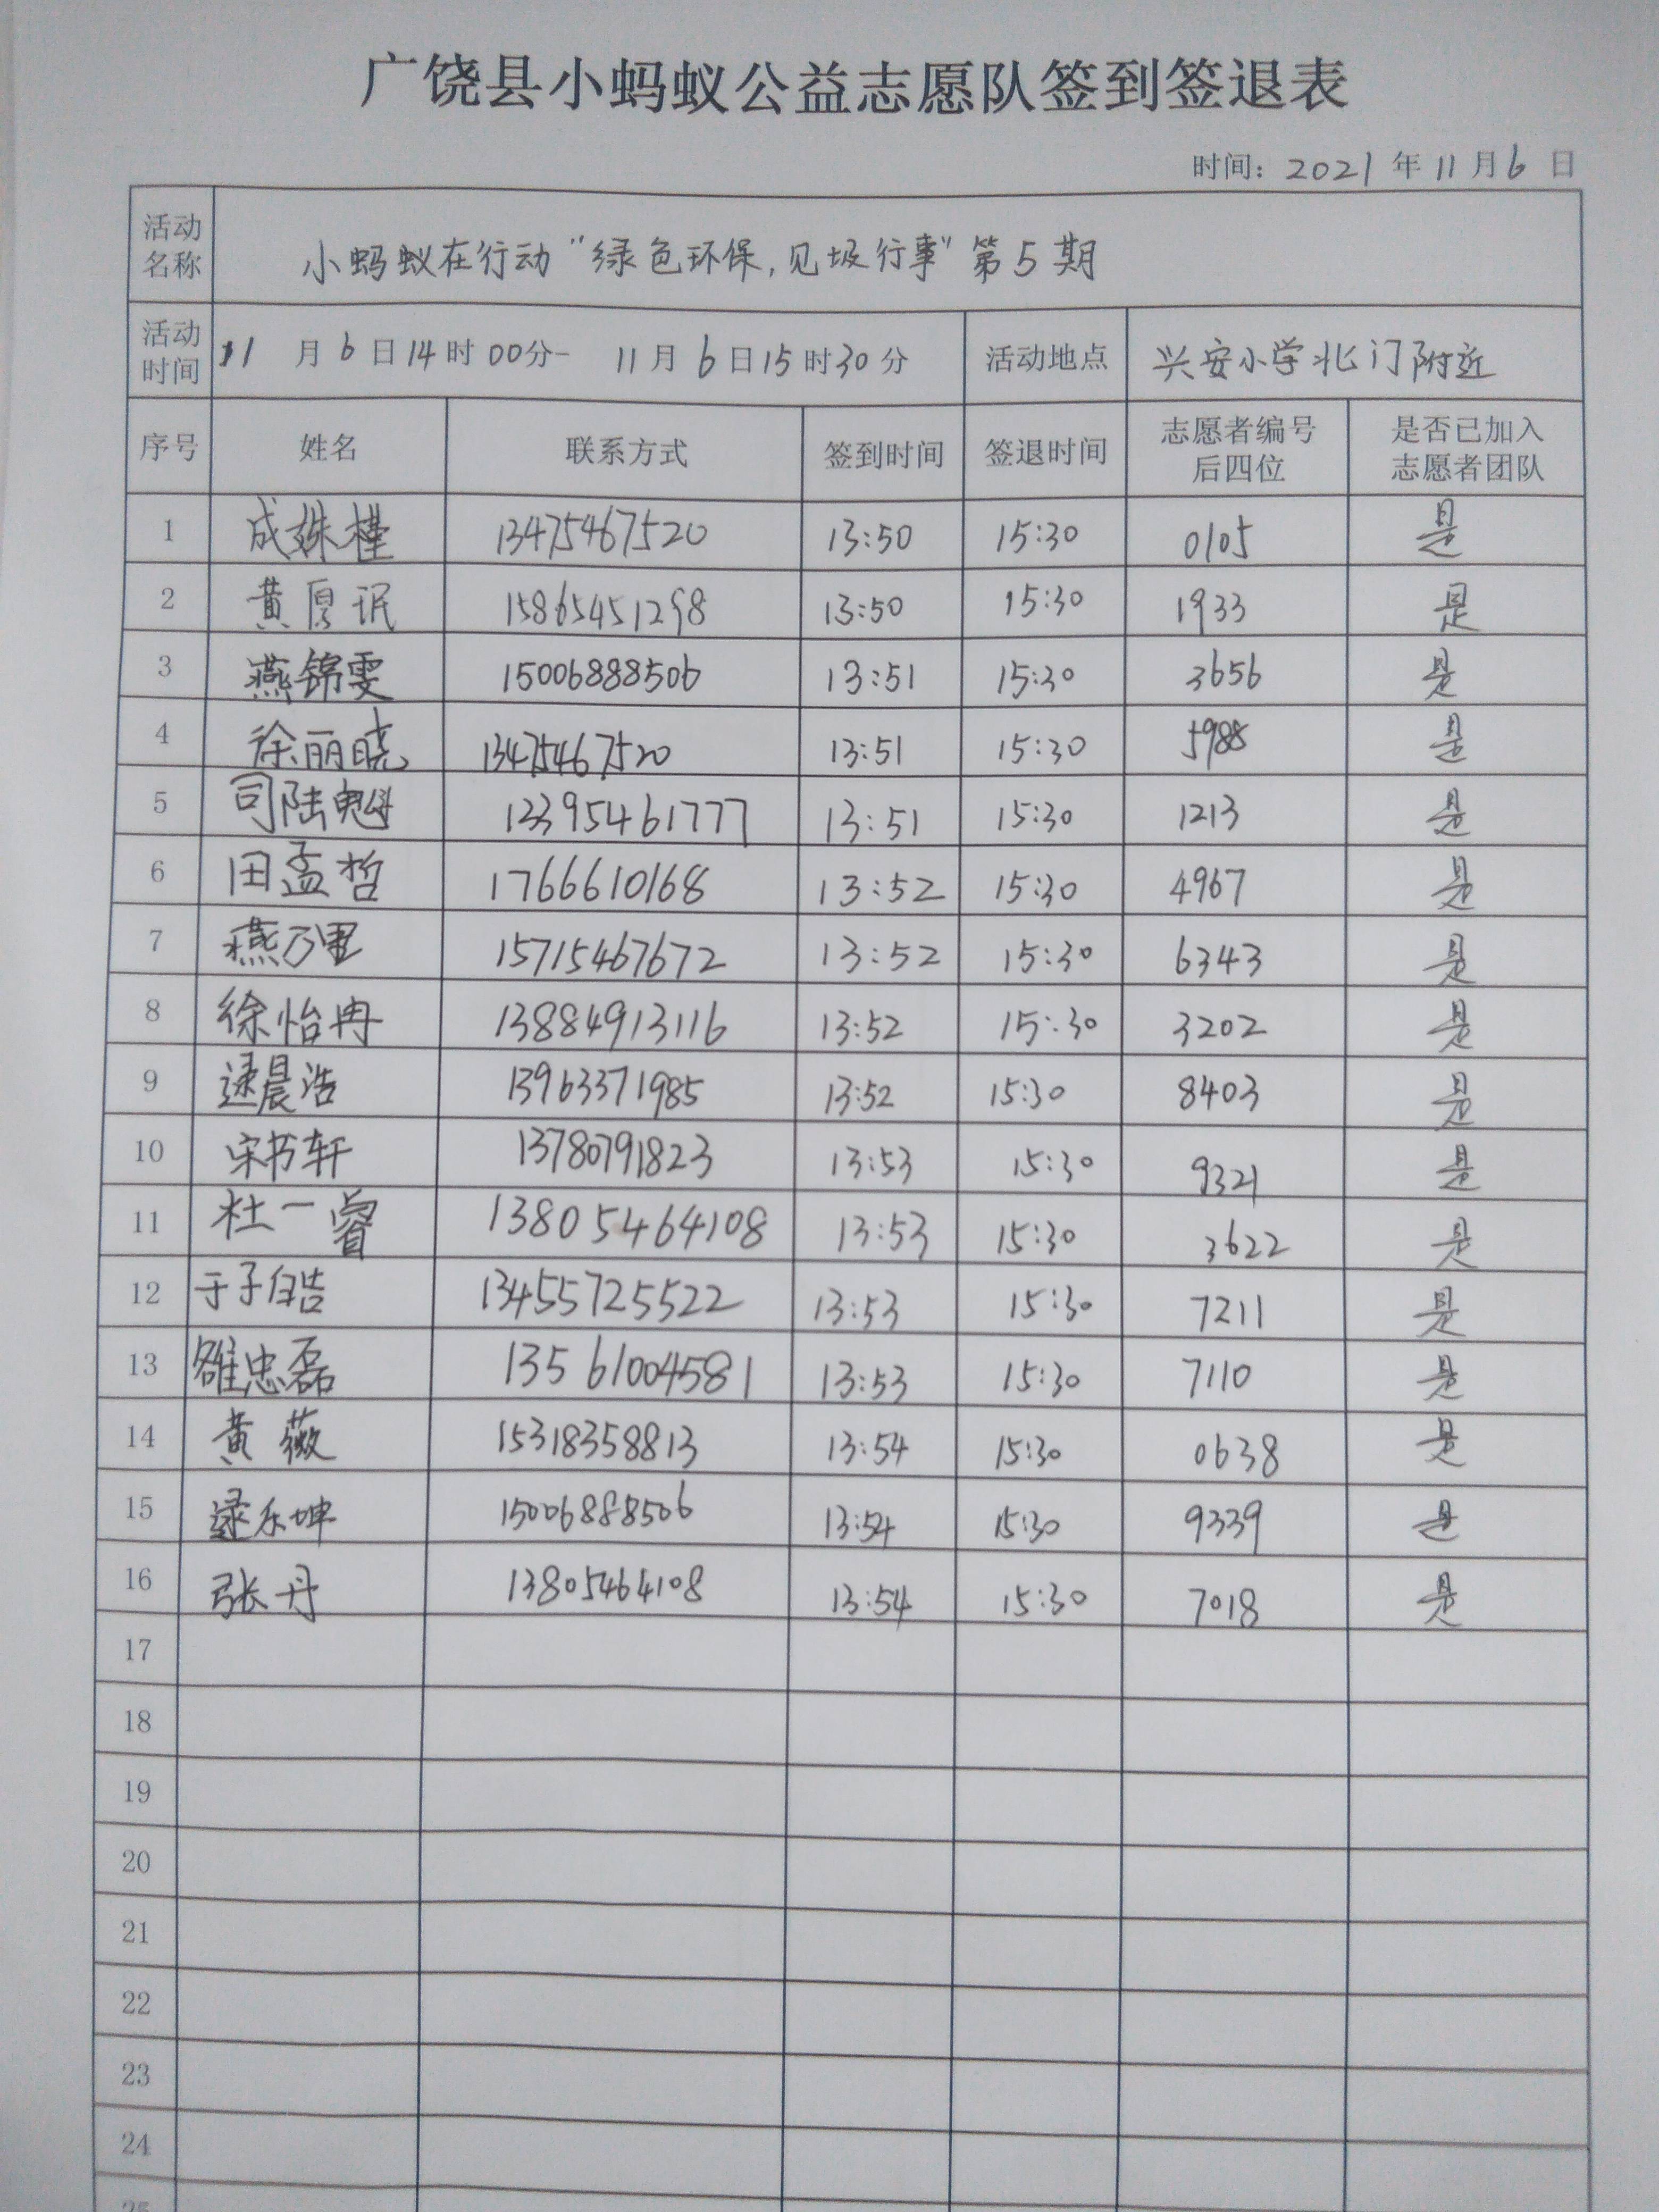 广饶县小蚂蚁公益志愿队签到签退表
时间：2021年11月6日
活动名称 小蚂蚁在行动"绿色环保,见圾行事"第5期
活动时间 11月6日14时00分- 11月6日15时30分 活动地点 兴安小学北门附近
序号 姓名 联系方式 签到时间 签退时间 志愿者编号后四位 是否已加入志愿者团队
1 成姝槿 13475467520 13:50 15:30 0105 是
2 黄厚珉 15865451298 13:50 15:30 1933 是
3 燕锦雯 15006888506 13:51 15:30 3656 是
4 徐丽晓 13475467520 13:51 15:30 5988 是
5 司陆魁 13395461777 13:51 15:30 1213 是
6 田孟哲 1766610168 13:52 15:30 4967 是
7 燕乃里 15715467672 13:52 15:30 6343 是
8 徐怡冉 13884913116 13:52 15:30 3202 是
9 逯晨浩 13963371985 13:52 15:30 8403 是
10 宋书轩 13780791823 13:53 15:30 9321 是
11 杜一睿 13805464108 13:53 15:30 3622 是
12 于子皓 13455725522 13:53 15:30 7211 是
13 雒忠磊 13561004581 13:53 15:30 7110 是
14 黄薇 15318358813 13:54 15:30 0638 是
15 逯乐坤 15006888506 13:54 15:30 9339 是
16 张丹 13805464108 13:54 15:30 7018 是
17
18
19
20
21
22
23
24
25